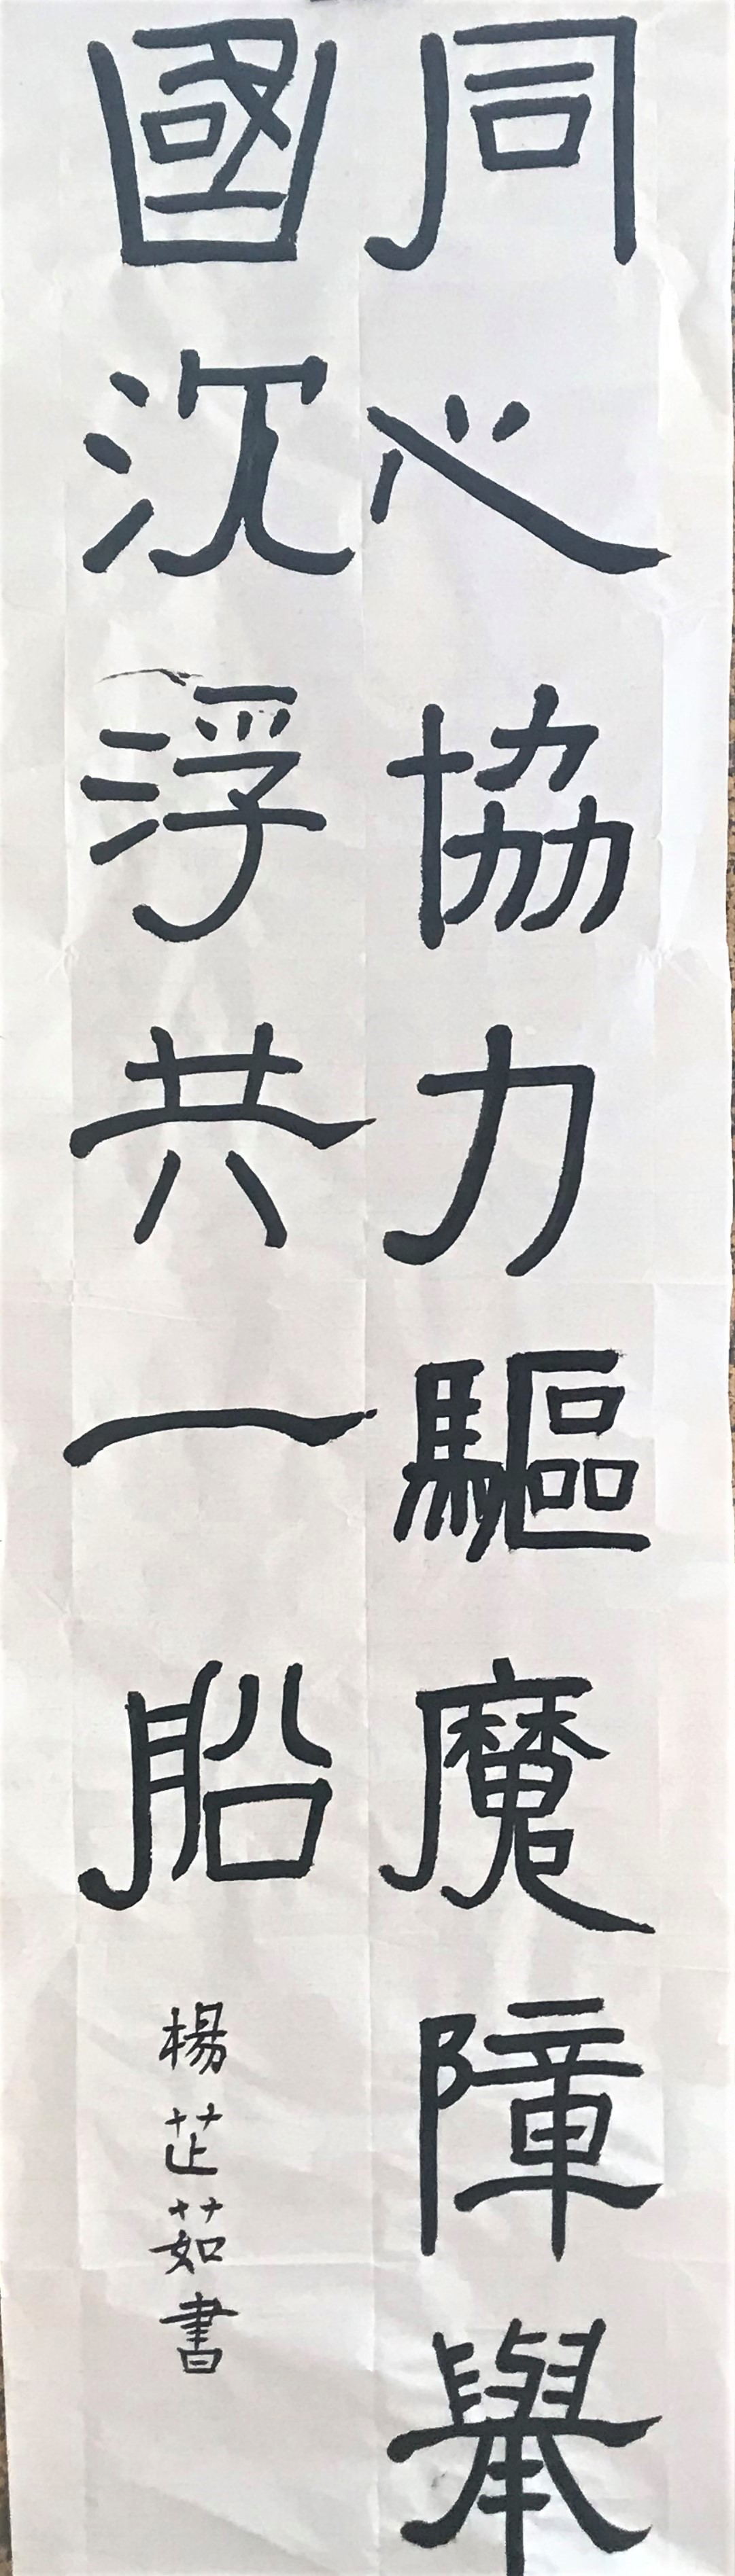 同心協力驅魔障舉
國沉浮共一船
楊芷茹書